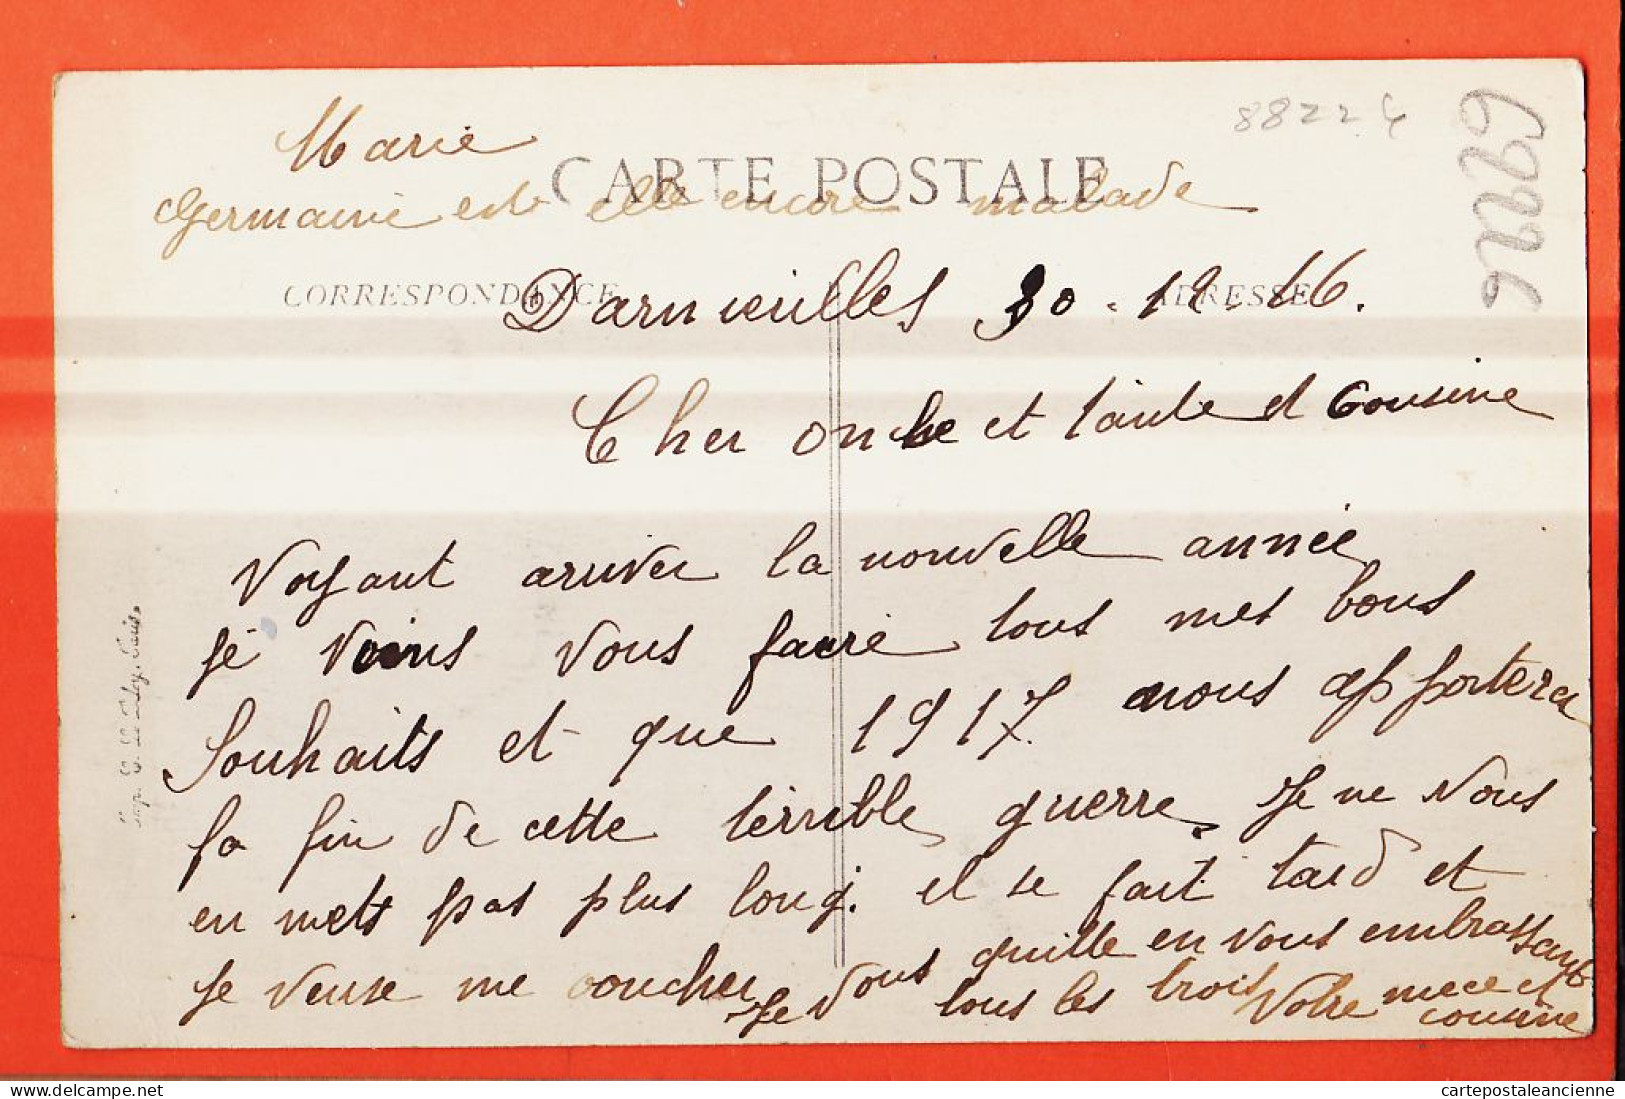 88224
69226
Marie
CARTE POSTALE
Germaine est elle encore malade
CORRESPONDANCE
ADRESSE
Darnieulles 30.12.16.
Cher oncle et tante et Cousine
Voyant arriver la nouvelle année
je voins vous faire tous mes bons
Souhaits et que 1917 nous apportera
la fin de cette terrible guerre Je ne vous
en mets pas plus long. il se fait tard et
je veuse me coucher Je vous quitte en vous embrassant
tous les trois Votre niece et
cousine
Imp. Paris
delcampe.net
cartepostaleancienne